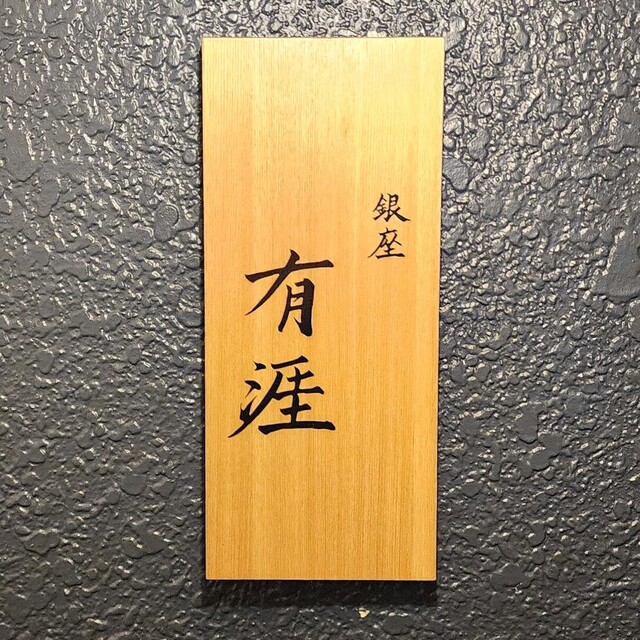 銀座
有涯